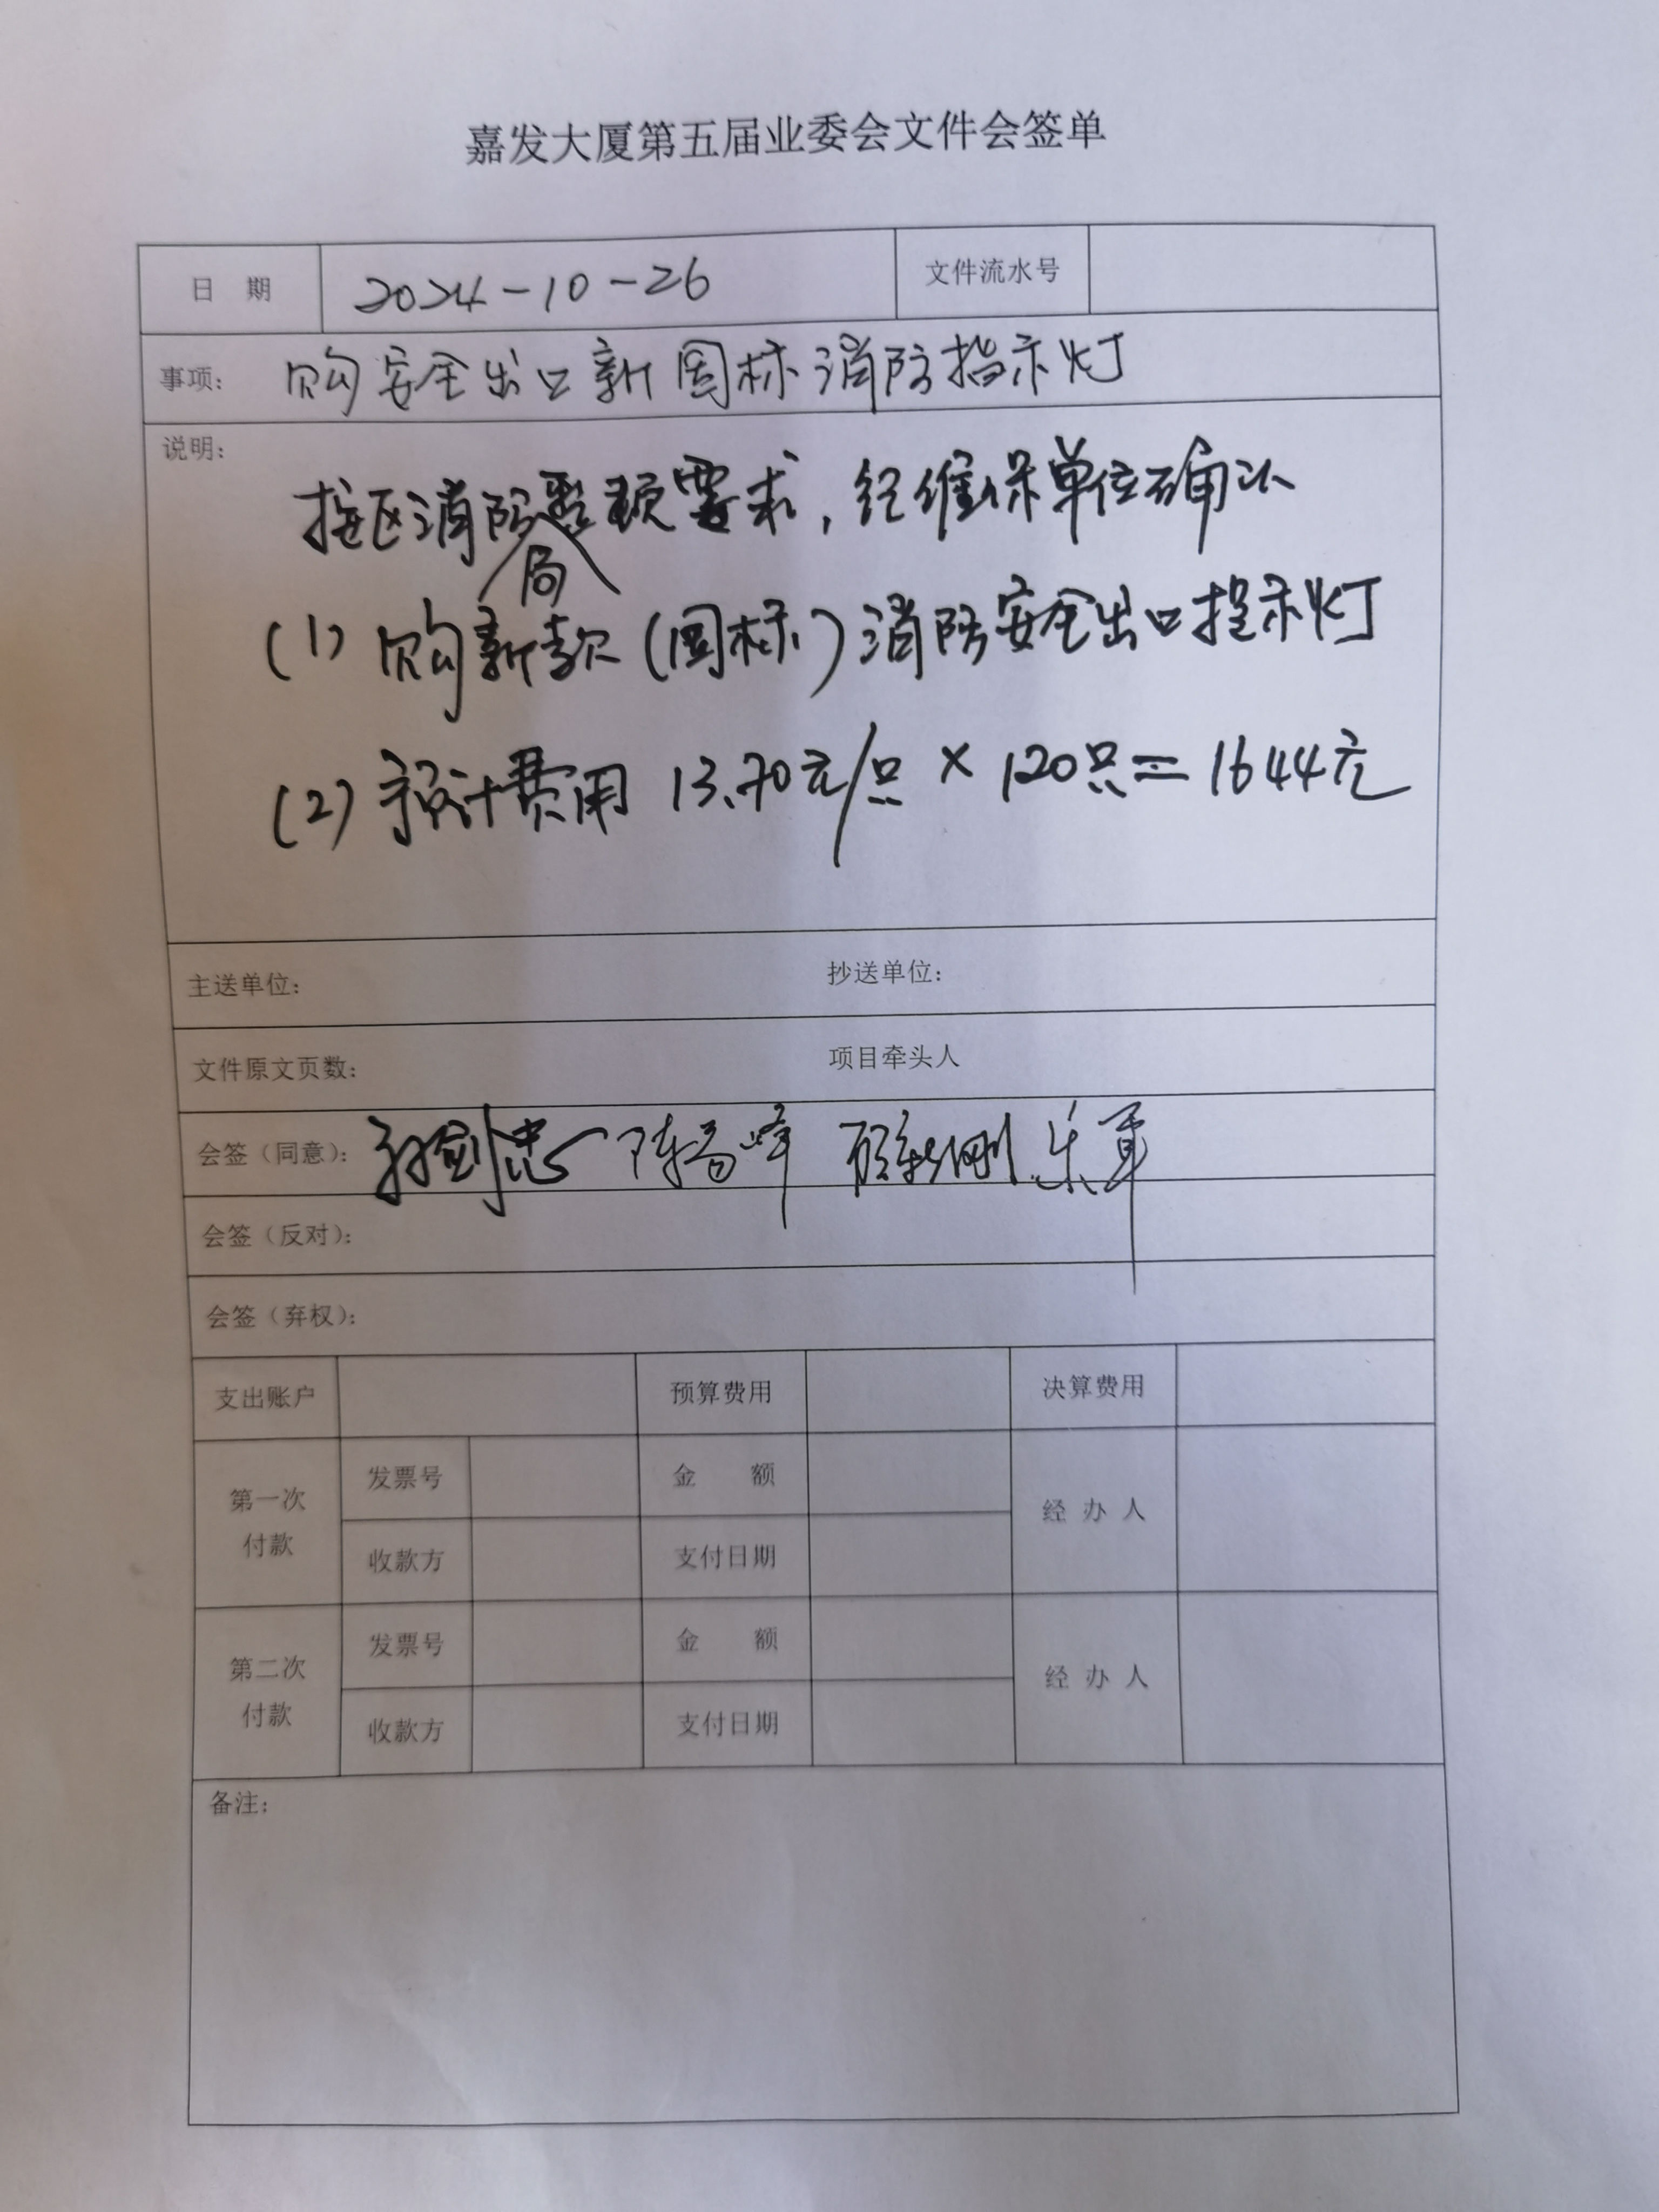 嘉发大厦第五届业委会文件会签单
日 期 2024-10-26 文件流水号
事项: 购安全出口新国标消防指示灯
说明:
按区消防局整顿要求,经维保单位确认
(1) 购新款(国标)消防安全出口提示灯
(2) 预计费用 13.70元/只 × 120只=1644元
主送单位: 抄送单位:
文件原文页数: 项目牵头人
会签(同意):
会签(反对):
会签(弃权):
支出账户 预算费用 决算费用
第一次付款 发票号 金 额 经 办 人
收款方 支付日期
第二次付款 发票号 金 额 经 办 人
收款方 支付日期
备注: